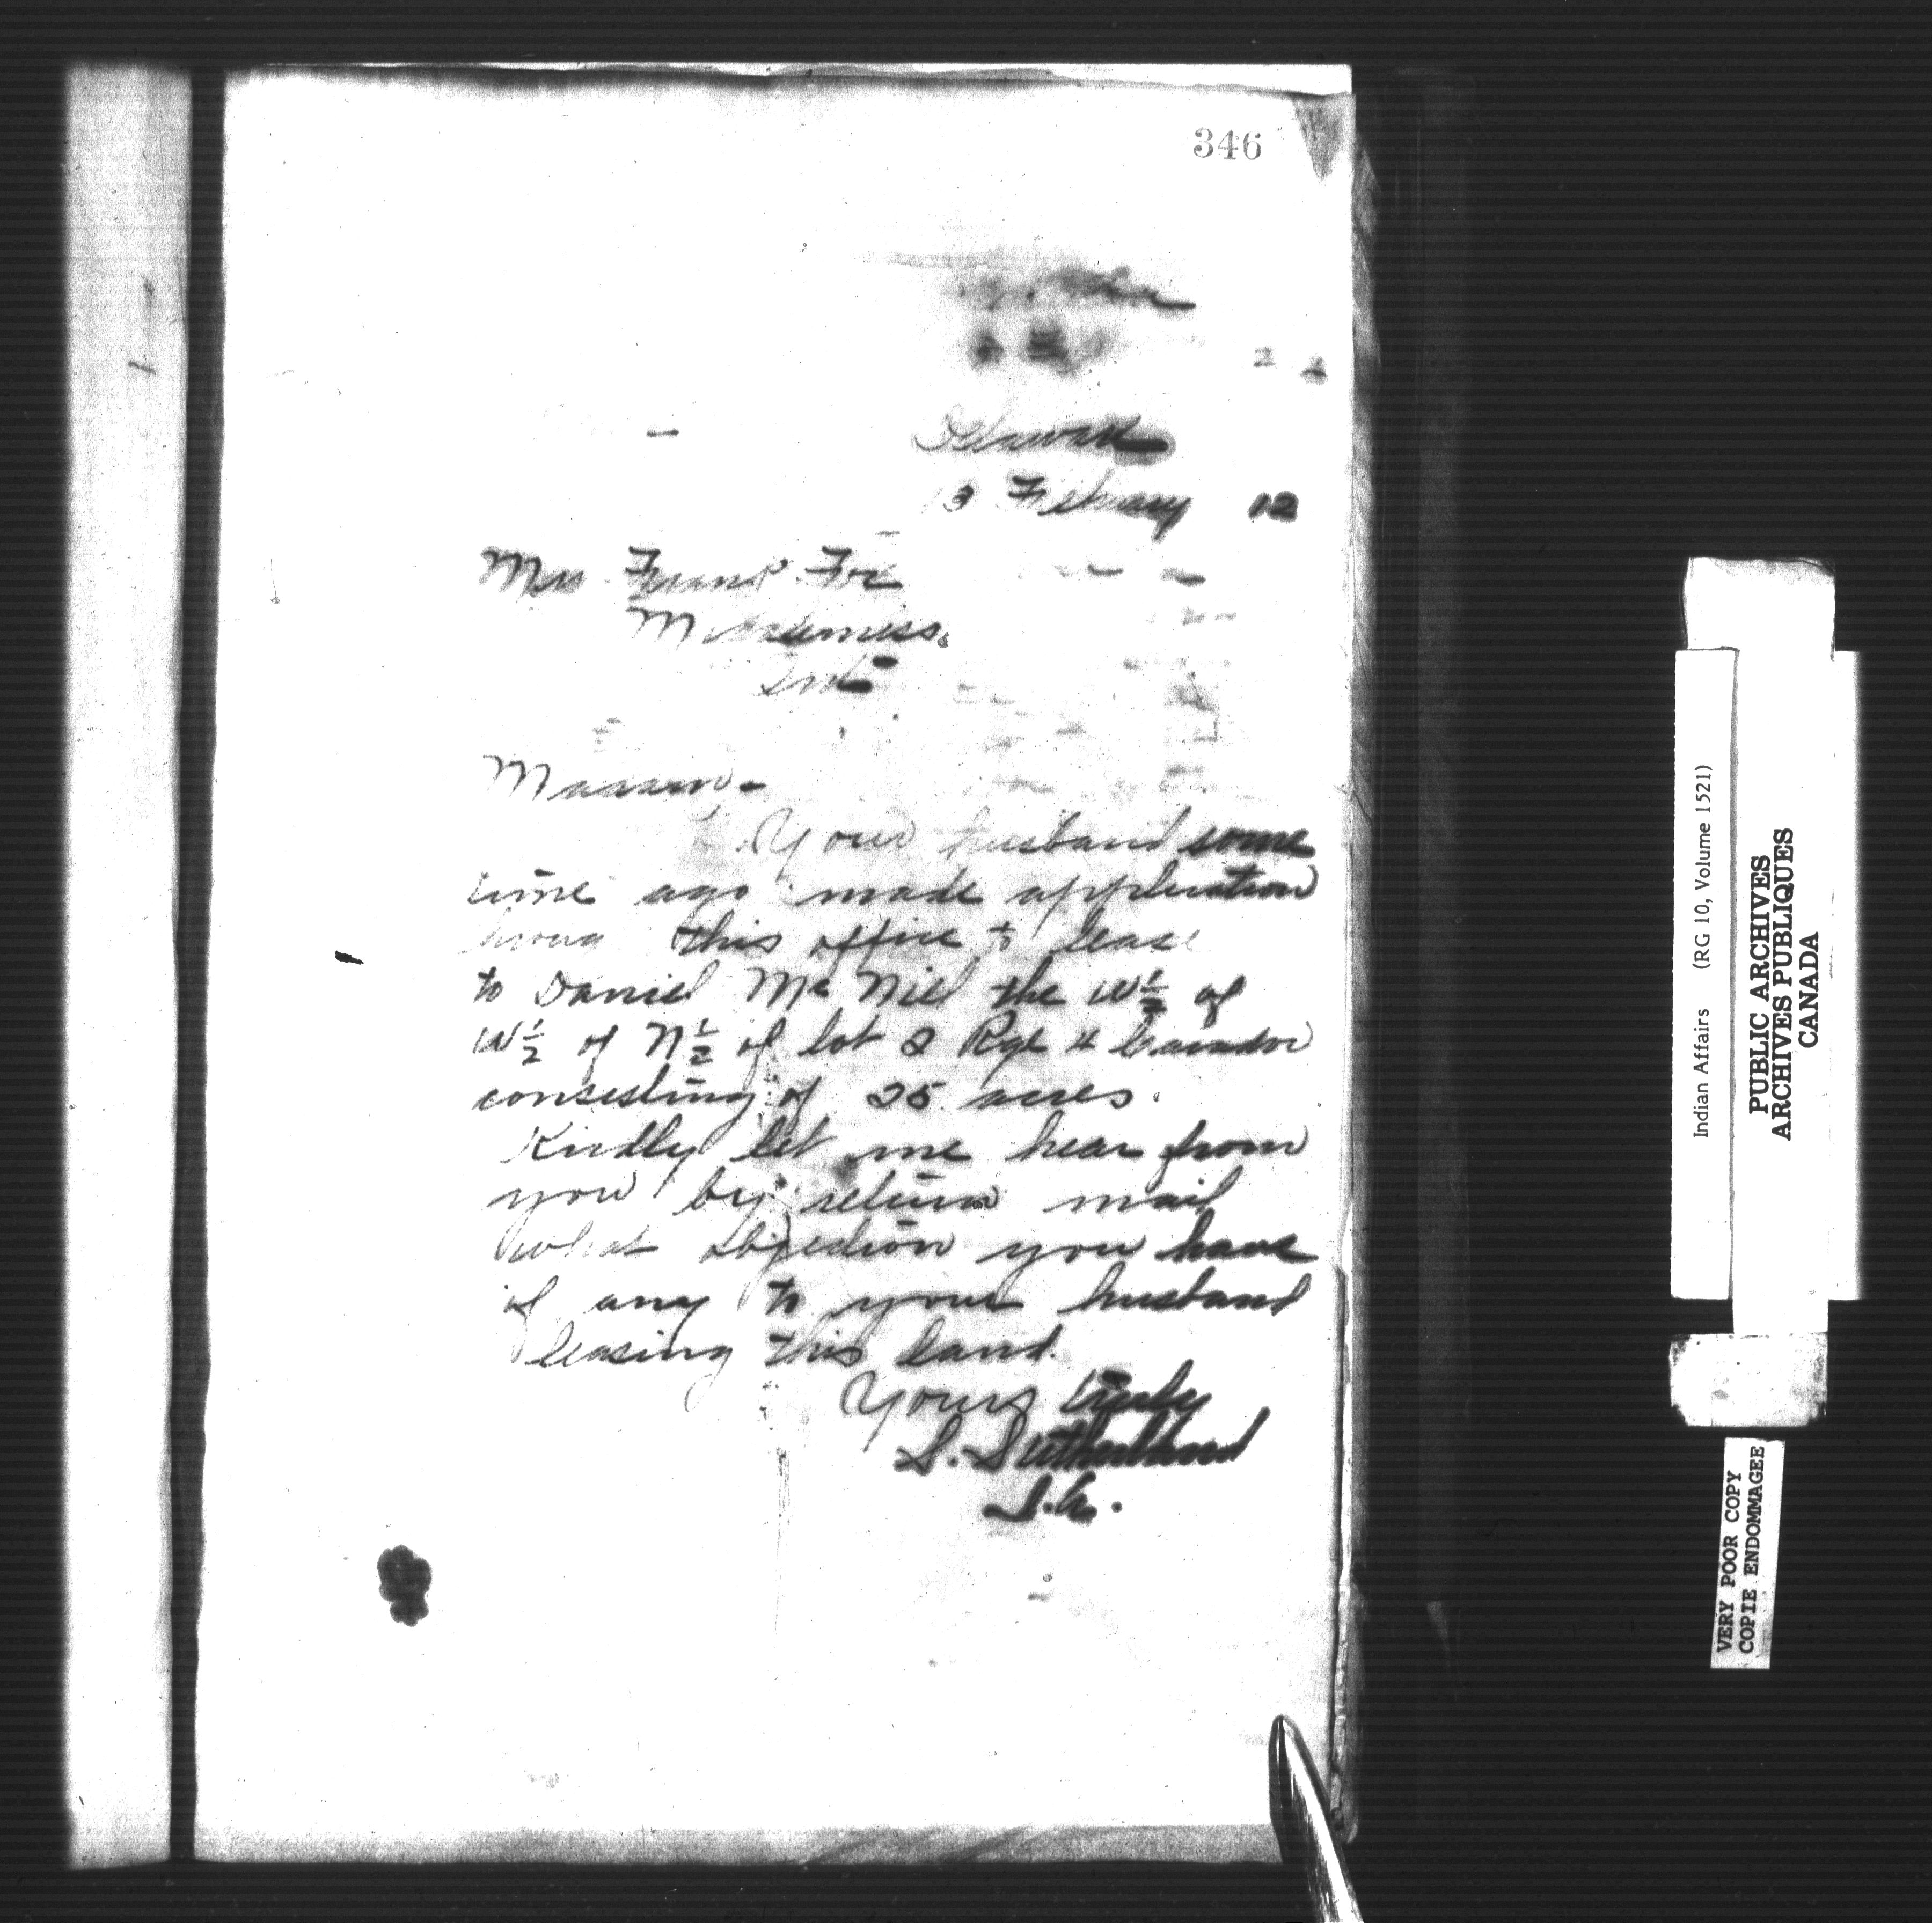 346
Delaware
13 February 12
Mrs Frank Fox
Ont
Madam
Your husband some
time ago made application
this office to lease
to Daniel McNiel the W½ of
W½ of N½ of lot 2 Rge 4 Caradoc
consisting of 25 acres.
Kindly let me hear from
you by return mail
what objection you have
if any to your husband
leasing this land.
Yours truly
S. Sutherland
I.A.
Indian Affairs (RG 10, Volume 1521)
PUBLIC ARCHIVES
ARCHIVES PUBLIQUES
CANADA
VERY POOR COPY
COPIE ENDOMMAGEE